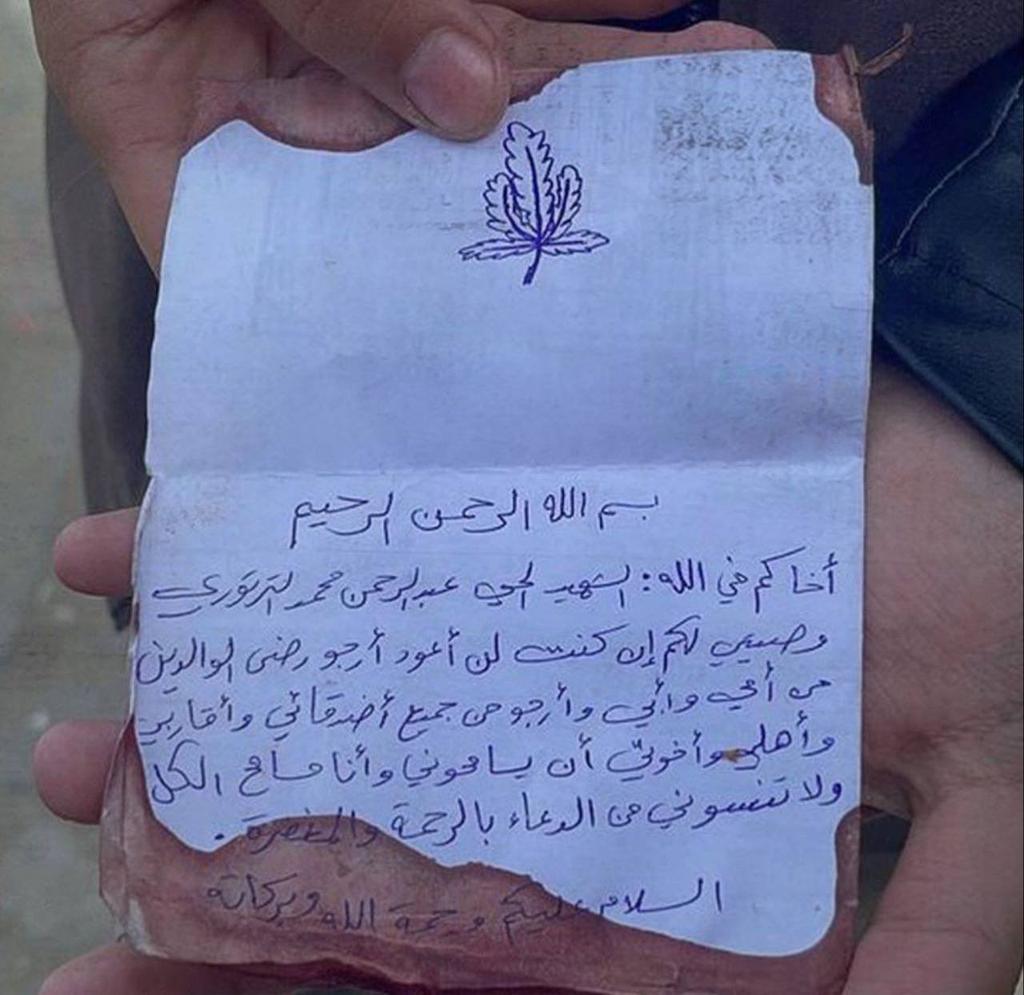 بسم الله الرحمن الرحيم
أخاكم في الله: الشهيد الحي عبدالرحمن محمد الترتوري
وصيتي لكم إن كنت لن أعود أرجو رضى الوالدين
من أمي وأبي وأرجو من جميع أصدقائي وأقاربي
وأهلي وأخوتي أن يسامحوني وأنا مسامح الكل
ولا تنسوني من الدعاء بالرحمة والمغفرة.
السلام عليكم ورحمة الله وبركاته